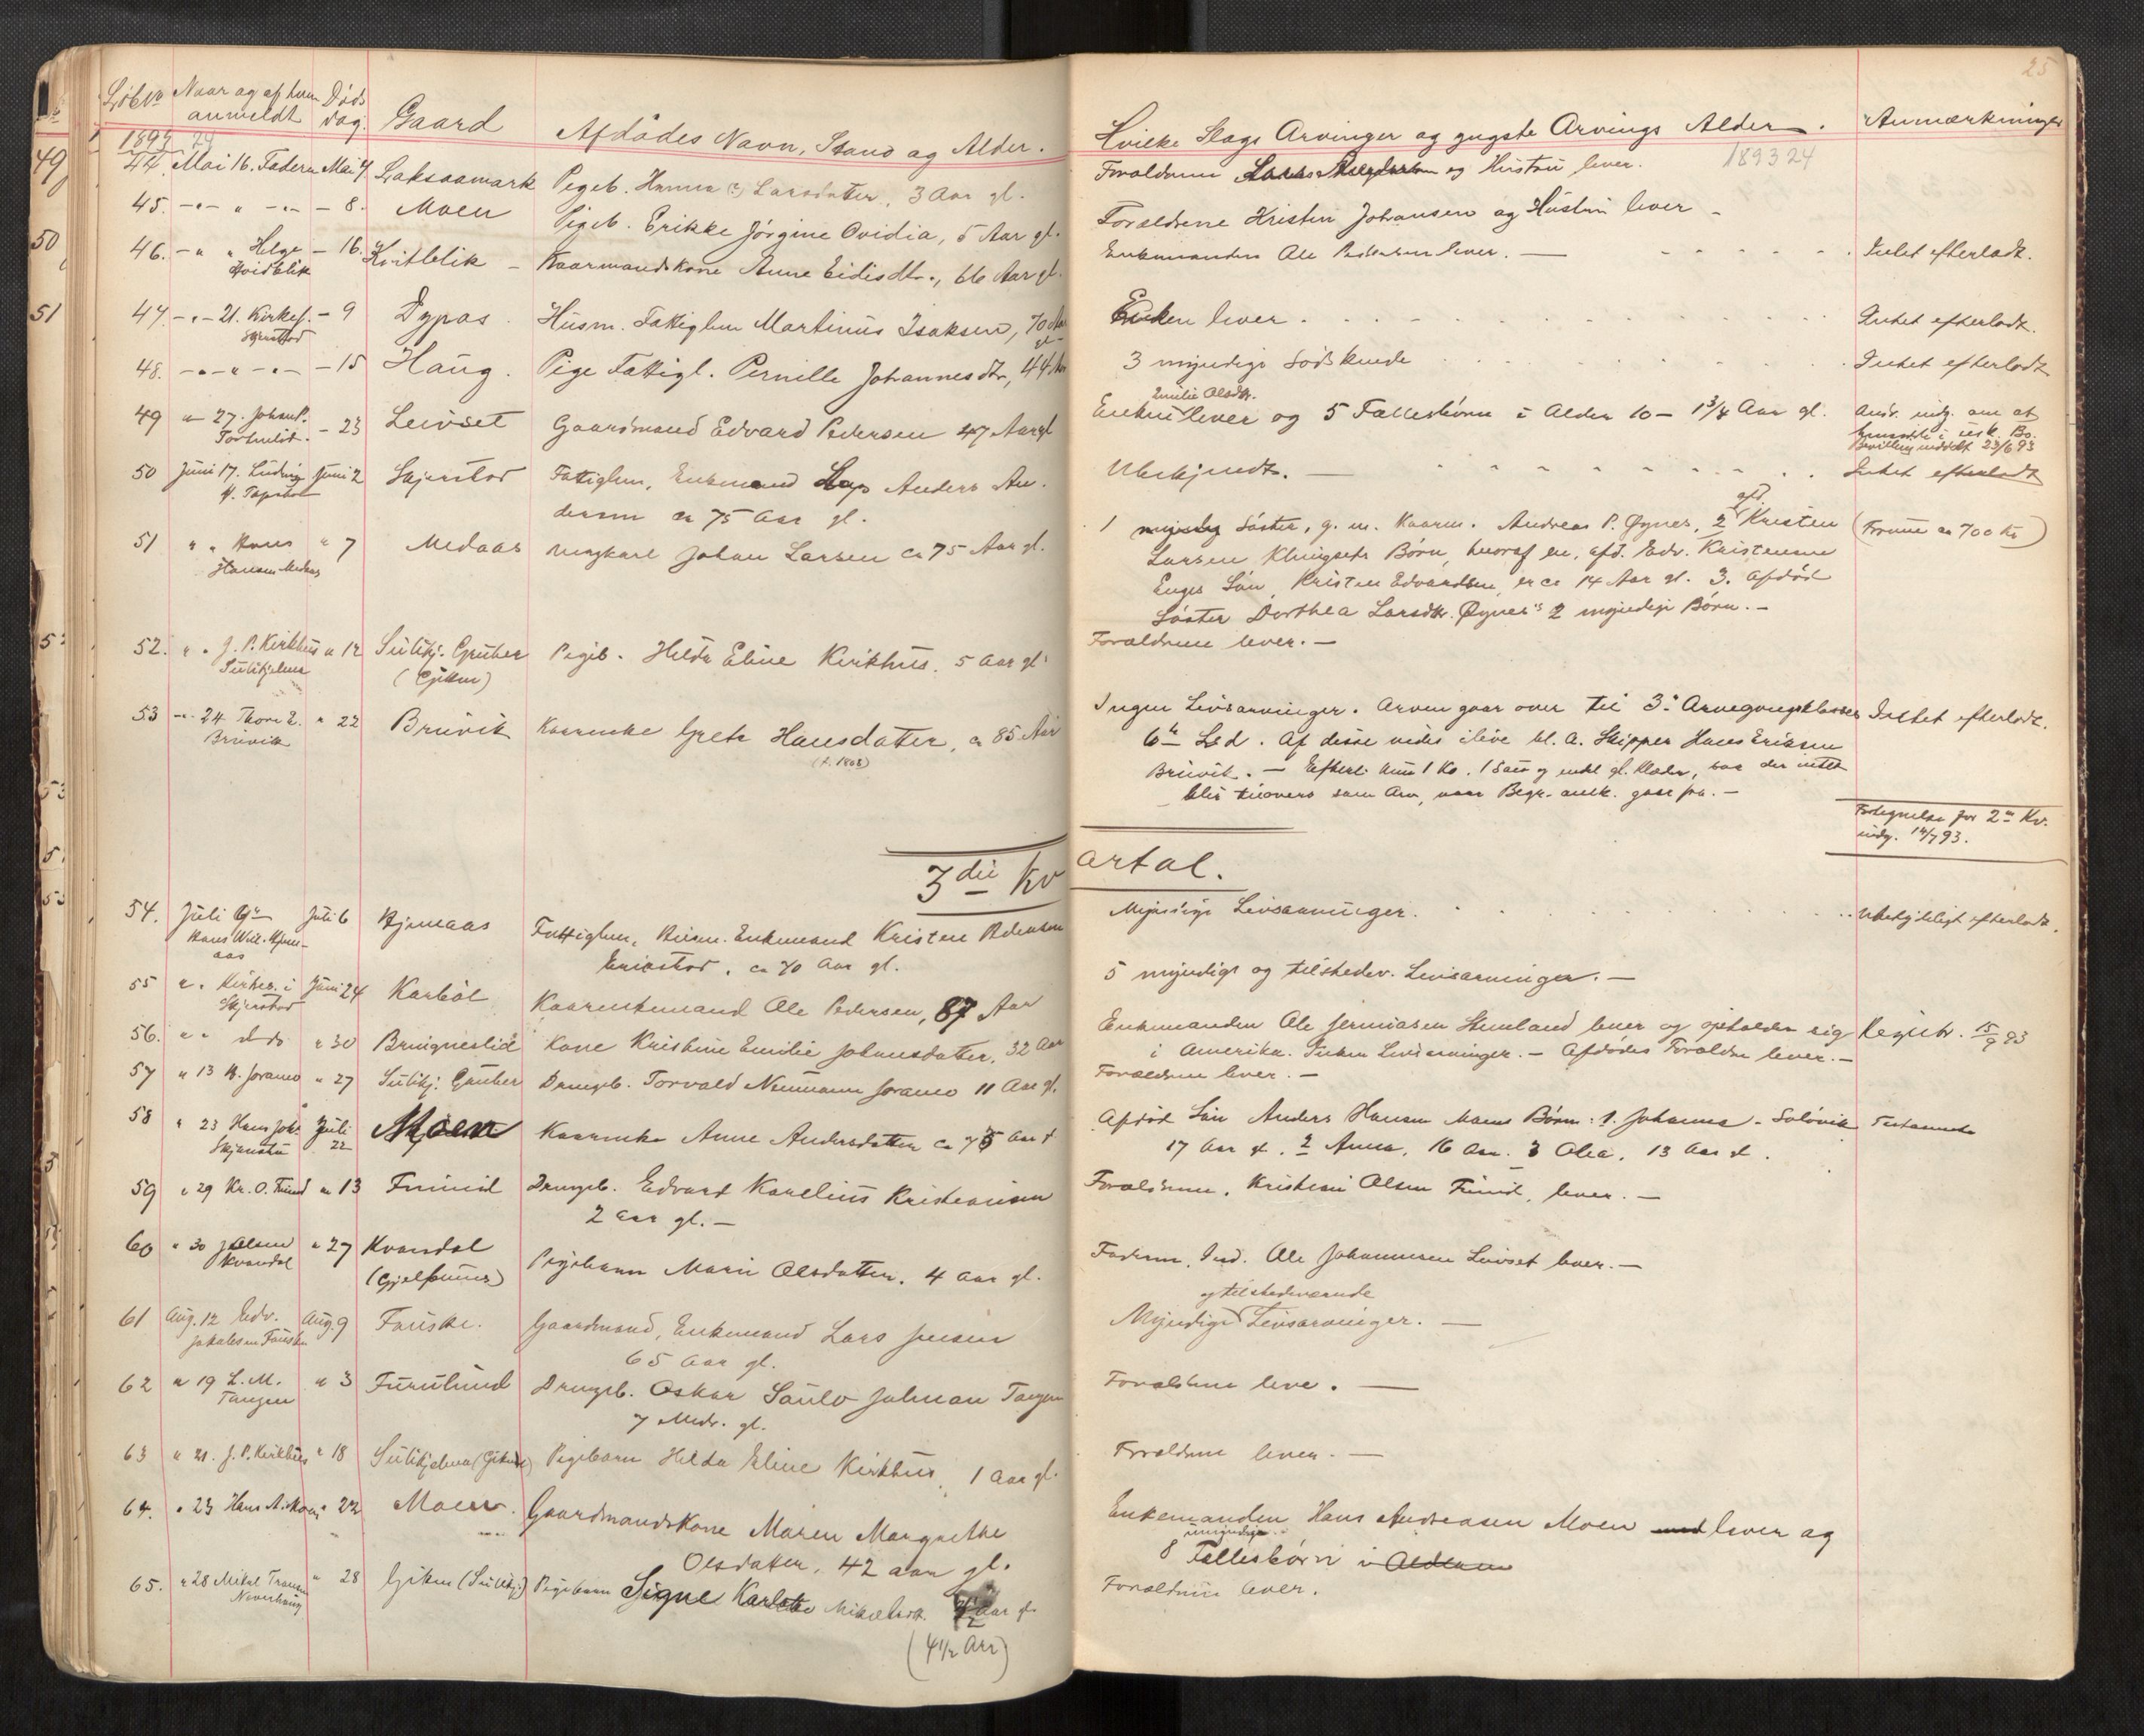 25
LøbNo Naar og af hvem anmeldt Døds dag. Gaard Afdødes Navn, Stand og Alder.
Hvilke Slags Arvinger og yngste Arvings Alder. Anmærkninger
1893 24
1893 24
44. Mai 16. Faderen Mai 7. Laksaamark Pigeb. Hanna Larsdatter, 3 Aar gl.
Forældrene og Hustru lever.
45. 8. Moen Pigeb. Erikke Jørgine Ovidia, 5 Aar gl.
Forældrene Kristen Johansen og Hustru lever
46. Helge Hvidblik 16. Kvitblik Kaarmandskone Anne Eidisdtr., 66 Aar gl.
Enkemanden Ole Pedersen lever. Intet efterladt.
47. 21. Kirkes. Skjerstad 9 Dypas Husm. Fattiglem Martinus Isaksen, 70 Aar gl
Enken lever. Intet efterladt.
48. 15 Haug. Pige Fattigl. Pernille Johannesdtr, 44 Aar
3 myndige Sødskende Intet efterladt
49 27. Johan P. 23 Leivset Gaardmand Edvard Pedersen 47 Aar gl
Emilie Olsdtr.
Enken lever og 5 Fællesbørn i Alder 10 - 1 3/4 Aar gl. Ands. indg. om at
i usk. Bo.
Bevilling 23/6 93
50 Juni 17. Ludvig Juni 2 Skjerstad Fattiglem, Enkemand Anders An-
dersen ca 75 Aar gl.
Ubekjendt. Intet efterladt
51 Hans Hansen Medaas 7 Medaas Ungkarl Johan Larsen ca 75 Aar gl.
1 myndig Søster, g. m. Kaarm. Andreas P. Øynes, 2 afd. Kristen (Formue ca 700 Kr)
Larsen Klungsets Børn, hvoraf en, afd. Edv. Kristensen
Enges Søn, Kristen Edvardsen, er ca 14 Aar gl. 3. Afdød
Søster Dorthea Larsdtr. Øynes's 2 myndige Børn.
52. J. P. Kirkhus Sulitjelma 12 Sulitj. Gruber (Gjiken) Pigeb. Hilda Eline Kirkhus. 5 Aar gl.
Forældrene lever.
53 24 Thore E. Bruvik 22 Bruvik Kaarenke Grete Hansdatter, ca 85 Aar
(f. 1808)
Ingen Livsarvinger. Arven gaar over til 3. Arvegangsklasses Intet efterladt.
6te Led. Af disse vides ilive bl. a. Skipper Hans Eriksen
Bruvik. Efterl. kun 1 Ko, 1 Sau og endel gl. Klæder, saa der intet
blir tilovers som Arv, naar Begr. omk. gaar fra.
Fortegnelse for 2det Kv.
indg. 14/7 93.
3die Kvartal.
54. Juli Juli 6 Hjemaas Fattiglem, Husm. Enkemand Kristen Pedersen
Erikstad, ca 70 Aar gl.
Myndige Livsarvinger. Ubetydeligt efterladt.
55 Kirkes. i Skjerstad Juni 24 Karbøl Kaarenkemand Ole Pedersen, 87 Aar
5 myndige og tilstedev. Livsarvinger.
56. do 30 Bringneslid Kone Kristine Emilie Johansdatter, 32 Aar
Enkemanden Ole Jermiasen Stenland lever og opholder sig Registr. 15/9 93
i Amerika. Ingen Livsarvinger. Afdødes Forældre lever.
57 13 27 Sulitj. Gruber Drengeb. Torvald Neumann 11 Aar gl.
Forældrene lever.
58 23 Hans Joh. Juli 22 Moen Kaarenke Anne Andersdatter ca 75 Aar gl
Afdød Søn Anders Hansen Moens Børn: 1. Johanna Soløvik Testamente
17 Aar gl. 2 Anna, 16 Aar. 3 Olea, 13 Aar gl.
59 29 Kr. O. Funiid 13 Funiid Drengeb. Edvard Kornelius Kristiansen
2 Aar gl.
Forældrene, Kristian Olsen Funiid, lever.
60 30 J. Olsen Kvandal 27 Kvandal (Gjelfunes) Pigebarn Marie Olsdatter. 4 Aar gl.
Faderen, Ind. Ole Johannesen Leivset lever.
61 Aug. 12 Edv. Jakobsen Fauske Aug. 9 Fauske. Gaardmand, Enkemand Lars Jensen
65 Aar gl.
og tilstedeværende
Myndige Livsarvinger.
62 19 L. M. Tangen 3 Furulund Drengeb. Oskar Saulo Johnan Tangen
7 Mdr. gl.
Forældrene leve.
63 21. J. P. Kirkhus 18 Sulitjelma (Gjiken) Pigebarn Hilda Eline Kirkhus, 1 Aar gl.
Forældrene lever.
64. 23 Hans A. Moen 22 Moen Gaardmandskone Maren Margrethe
Olsdatter, 42 aar gl.
Enkemanden Hans Andreasen Moen lever og
umyndige
8 Fællesbørn i Alderen
65. 28 Mikal 28 Gjiken (Sulitj) Pigebarn Signe Mikalsdtr. Aar gl.
(4 1/2 Aar)
Forældrene lever.